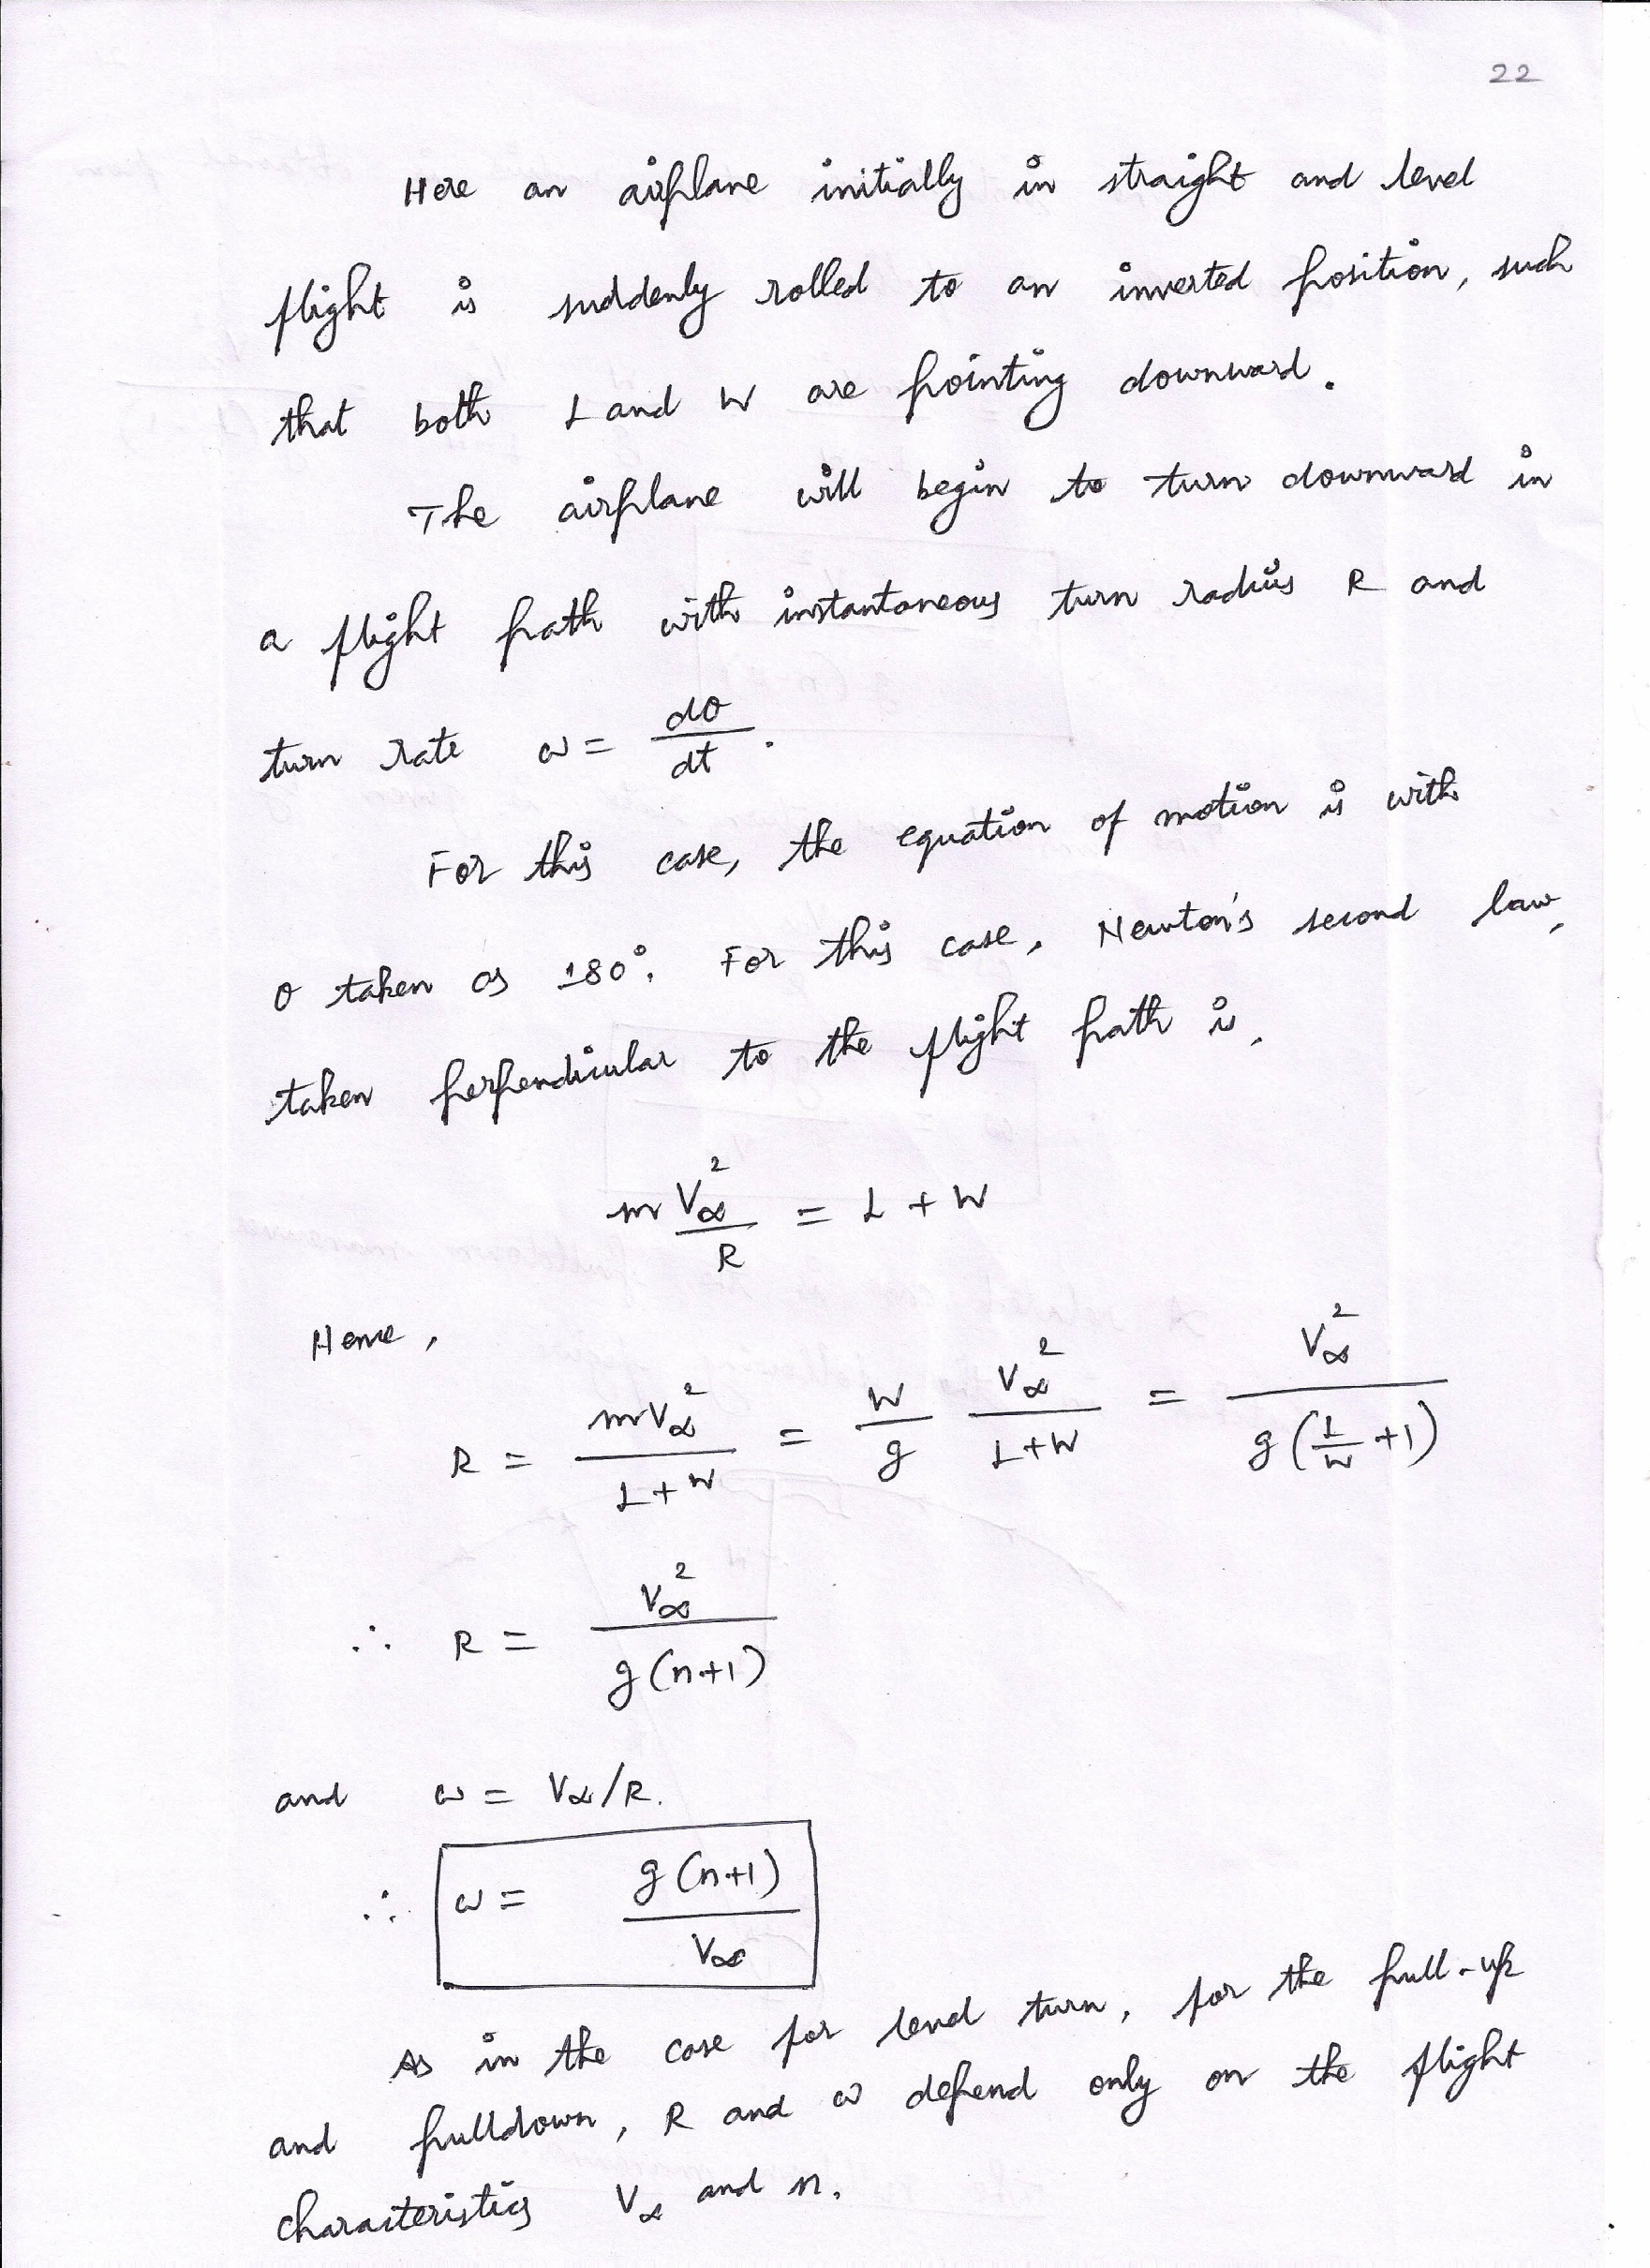 22
Here an airplane initially in straight and level
flight is suddenly rolled to an inverted position, such
that both L and W are pointing downward.
The airplane will begin to turn downward in
a flight path with instantaneous turn radius R and
turn rate ω = dθ/dt.
For this case, the equation of motion is with
θ taken as 180°. For this case, Newton's second law,
taken perpendicular to the flight path is,
m V∞²/R = L + W
Hence,
R = mV∞²/(L+W) = W/g V∞²/(L+W) = V∞²/(g(L/W +1))
∴ R = V∞²/(g(n+1))
and ω = V∞/R.
∴ ω = g(n+1)/V∞
As in the case for level turn, for the pull-up
and pulldown, R and ω depend only on the flight
characteristics V∞ and n.